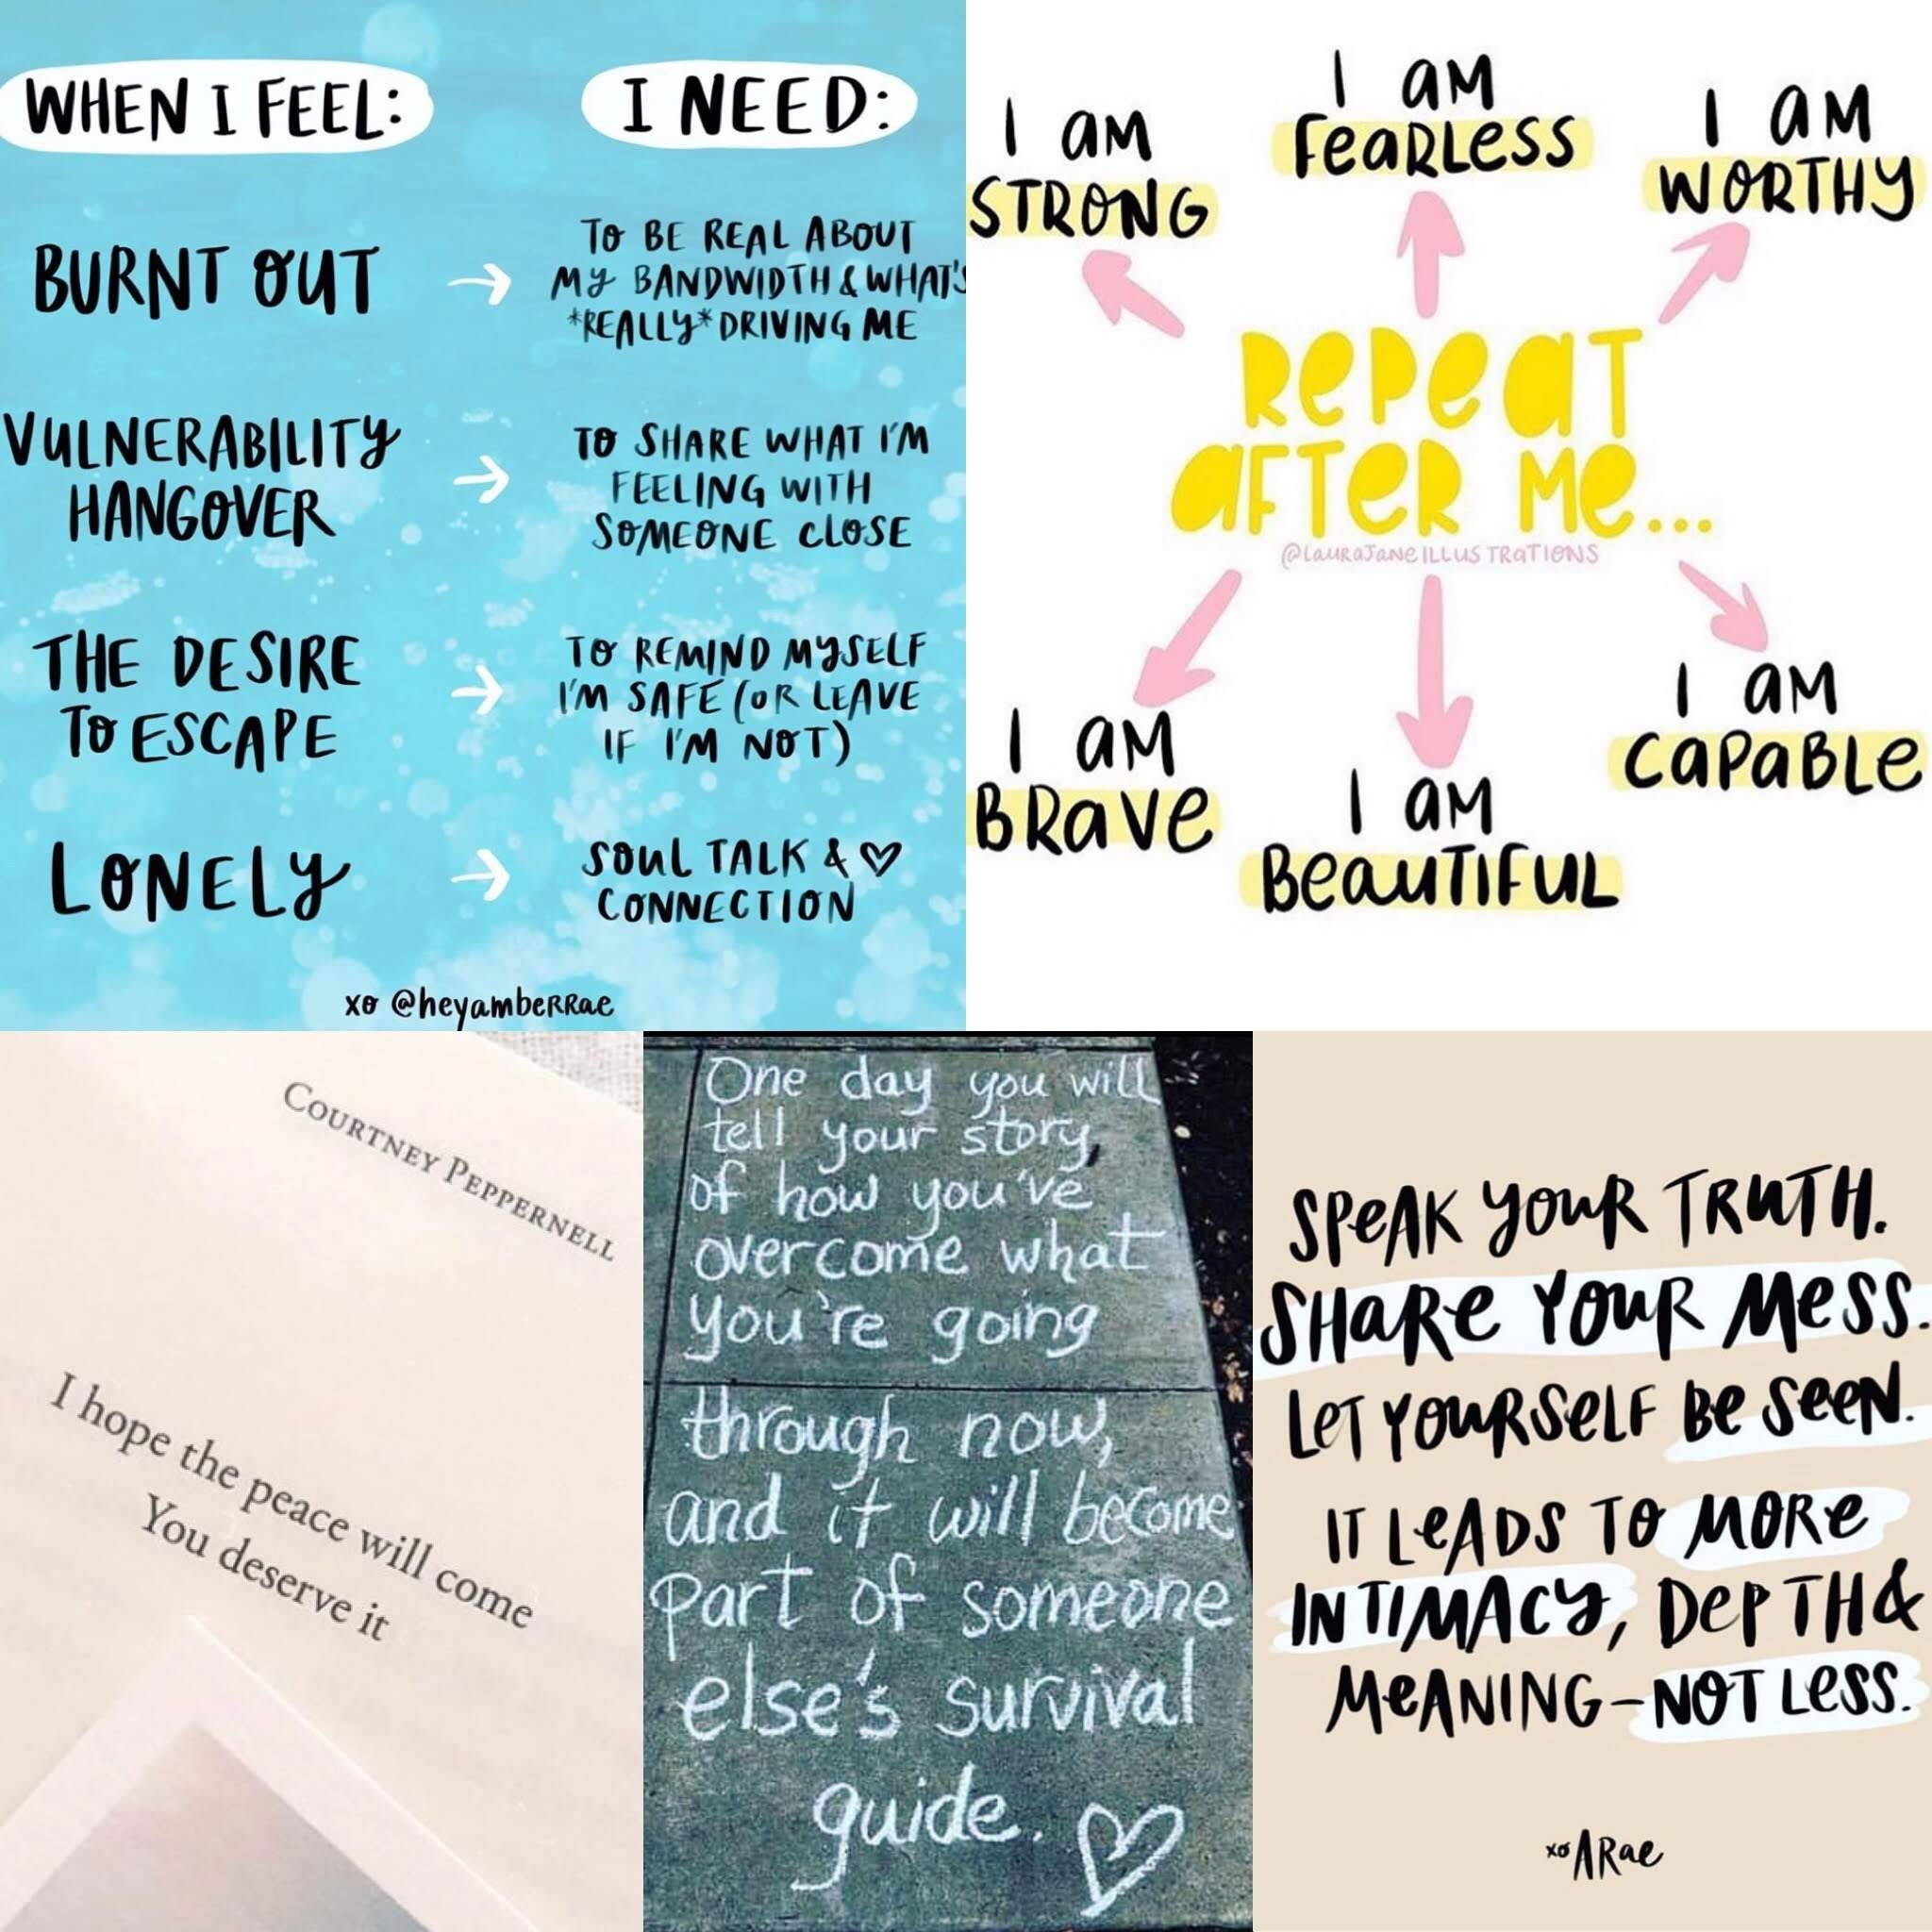 WHEN I FEEL:
I NEED:
BURNT OUT
TO BE REAL ABOUT
MY BANDWIDTH & WHAT'S
*REALLY* DRIVING ME
VULNERABILITY
HANGOVER
TO SHARE WHAT I'M
FEELING WITH
SOMEONE CLOSE
THE DESIRE
TO ESCAPE
TO REMIND MYSELF
I'M SAFE (OR LEAVE
IF I'M NOT)
LONELY
SOUL TALK & ♡
CONNECTION
xo @heyamberrae
I AM
STRONG
I AM
FEARLESS
I AM
WORTHY
REPEAT
AFTER ME...
@LAURAJANEILLUSTRATIONS
I AM
BRAVE
I AM
BEAUTIFUL
I AM
CAPABLE
COURTNEY PEPPERNELL
I hope the peace will come
You deserve it
One day you will
tell your story,
of how you've
overcome what
you're going
through now,
and it will become
part of someone
else's survival
guide. ♡
SPEAK YOUR TRUTH.
SHARE YOUR MESS.
LET YOURSELF BE SEEN.
IT LEADS TO MORE
INTIMACY, DEPTH &
MEANING—NOT LESS.
xo ARae